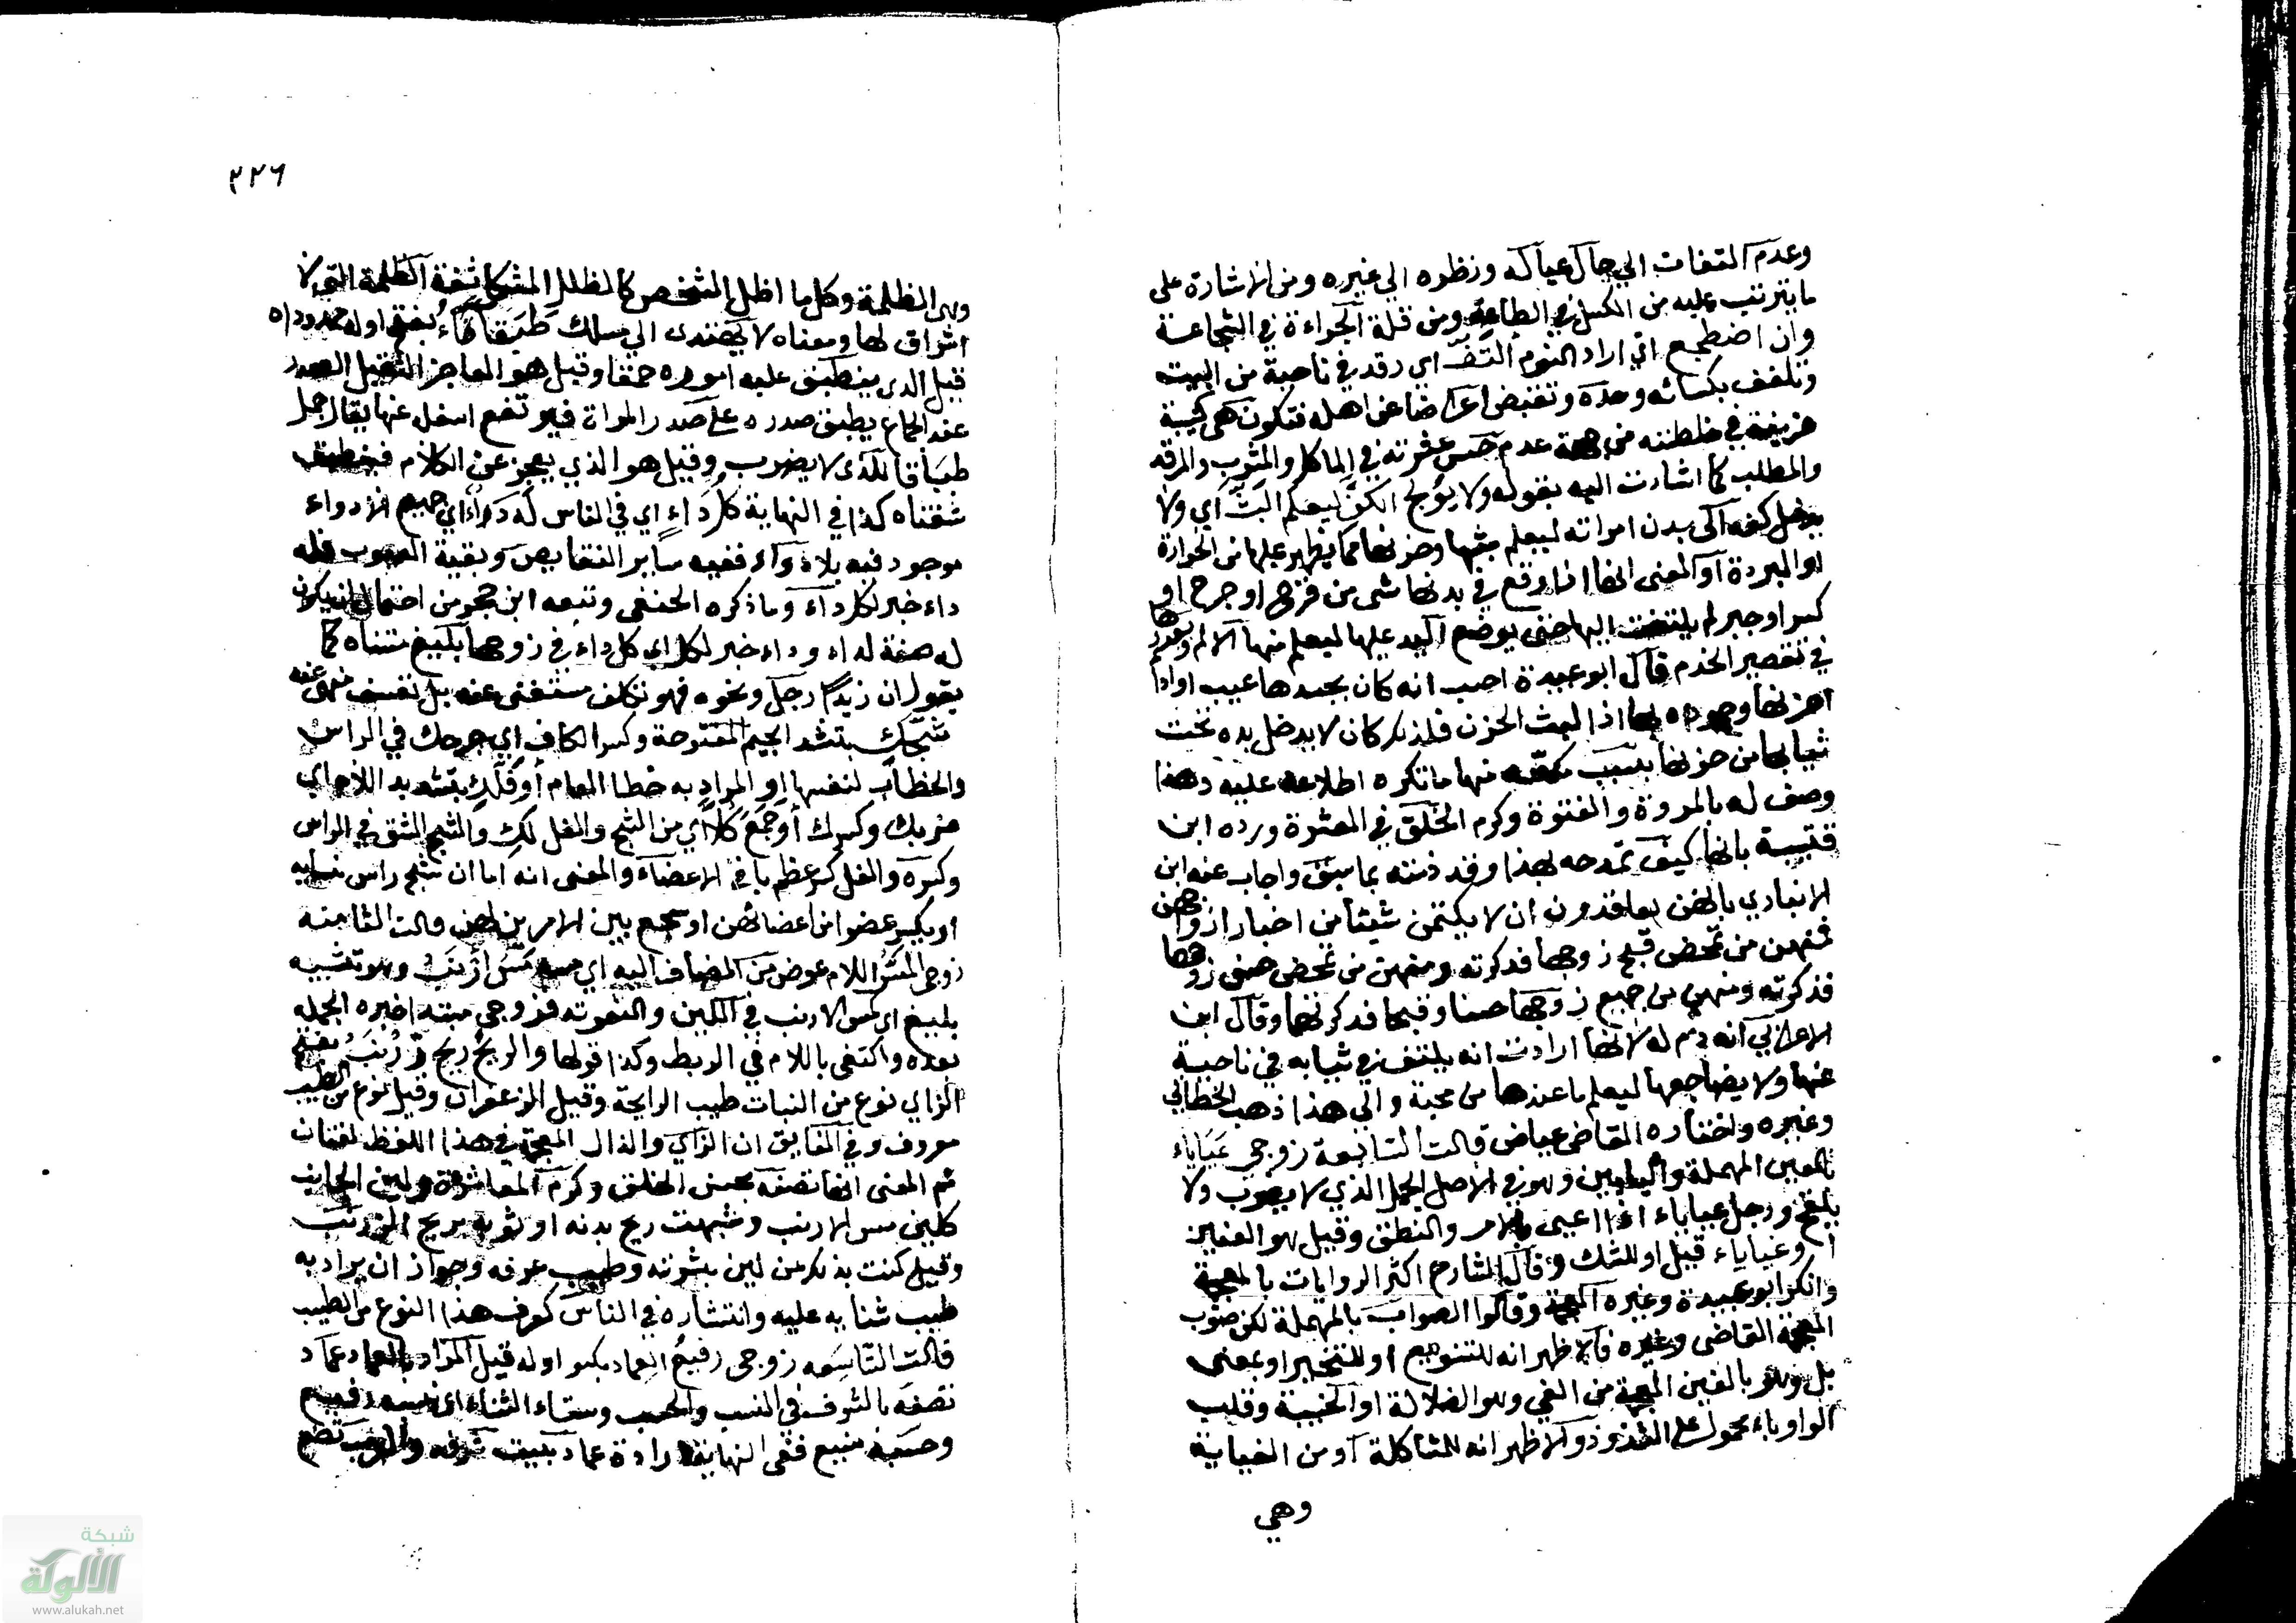 وعدم التفات الي حال عياله ونظره الي غيره ومن الاشارة على
ما يترتب عليه من الكسل في الطاعة ومن قلة الجراءة في الشجاعة
وان اضطجع اي اراد النوم التف اي رقد في ناحية من البيت
وتلفف بكسائه وحده وتقبض اعراضا عن اهله فتكون هي كئيبة
حزينة في خلطته من جهة عدم حسن عشرته في الماكل والمشرب والمرقد
والمطلب كما اشارت اليه بقوله ولا يولج الكف ليعلم البث اي ولا
يدخل كفه الى بدن امراته ليعلم بثها وحزنها مما يظهر عليها من الحرارة
او البرودة او المعنى انها اذا وقع في بدنها شي من قرح او جرح او
كسر او جبر لم يلتفت اليها حتى يوضع اليد عليها ليعلم منها الالم ويعذرها
في تقصير الخدم قال ابو عبيدة احسب انه كان بجسدها عيب او داء
احزنها وجوده لها اذ البث الحزن فلذلك كان لا يدخل يده تحت
ثيابها من حزنها بسبب منها ما تكره اطلاعه عليه وهذا
وصف له بالمروة والفتوة وكرم الخلق في العشرة ورده ابن
قتيبة بانها كيف تمدحه بهذا وقد ذمته بما سبق واجاب عنه ابن
الانباري بانهن تعاقدون ان لا يكتمن شيئا من اخبار ازواجهن
فمنهن من تمحض قبح زوجها فذكرته ومنهن من تمحض حسن زوجها
فذكرته ومنهن من جمع زوجها حسنا وقبحا فذكرتهما وقال ابن
الاعرابي انه ذم له لانها ارادت انه يلتف في ثيابه في ناحية
عنها ولا يضاجعها ليعلم ما عندها من محبة والي هذا ذهب الخطابي
وغيره واختاره القاضي عياض قالت السابعة زوجي عياياء
بالعين المهملة واليائين وهو في الاصل الجمل الذي لا يضرب ولا
يلقح ورجل عياياء اذا اعيى بالامر والنطق وقيل هو العنين
او غياياء قيل او للشك وقال الشارح اكثر الروايات بالمعجمة
وانكر ابو عبيدة وغيره المعجمة وقالوا الصواب بالمهملة لكن صوب
المعجمة القاضي وغيره فالاظهر انه للتنويع او للتخيير او بمعنى
بل وهو بالغين المعجمة من الغي وهو الضلالة او الخيبة وقلب
الواو ياء محمول على الشذوذ والاظهر انه للمشاكلة او من الغياية
وهي
٢٢٦
وهى الظلمة وكل ما اظل الشخص كالظلل المتكاثفة الظلمة التي لا
اشراق لها ومعناه لا يهتدى الي مسلك طباقاء بفتح اوله ممدودا
قيل الذي ينطبق عليه اموره حمقا وقيل هو العاجز الثقيل الصدر
عند الجماع يطبق صدره على صدر المراة فيرتفع اسفله عنها يقال جمل
طباقا للذى لا يضرب وقيل هو الذي يعجز عن الكلام فينطبق
شفتاه كذا في النهاية كل داء اي في الناس له داء اي جميع الادواء
موجود فيه بلا دواء ففيه ساير النقايص وبقية العيوب فله
داء خبر لكل داء وما ذكره الحنفي وتبعه ابن حجر من احتمال ان يكون
له صفة لداء وداء خبر لكل اى كل داء في زوجها بليغ متناه كما
يقول ان زيدا رجل ونحوه فهو تكلف مستغنى عنه بل تعسف منهى عنه
شجك بتشد الجيم المفتوحة وكسر الكاف اي جرحك في الراس
والخطاب لنفسها او المراد به خطا العام او فلك بتشديد اللام اي
ضربك وكسرك او جمع كلا اي من الشج والفل لك والشج الشق في الراس
وكسره والفل كسر عظم باقي الاعضاء والمعنى انه اما ان شج راس نسايه
او يكسر عضوا من اعضائهن او يجمع بين الامرين لهن قالت الثامنة
زوجى المس اللام عوض من المضاف اليه اي مسه مس ارنب وهو تشبيه
بليغ اي كمس الارنب في اللين والنعومة فزوجي مبتدا خبره الجملة
بعده واكتفى باللام في الربط وكذا قولها والريح ريح زرنب بفتح
الزاي نوع من النبات طيب الرايحة وقيل الزعفران وقيل نوع من الطيب
معروف وفي الفايق ان الزاي والذال المعجمة في هذا اللفظ لغتان
ثم المعنى انها تصفه بحسن الخلق وكرم المعاشرة ولين الجانب
كلين مس الارنب وشبهت ريح بدنه او ثوبه بريح الزرنب
وقيل كنت بذلك من لين بشرته وطيب عرفه وجواز ان يراد به
طيب ثنايه عليه وانتشاره في الناس كعرف هذا النوع من الطيب
قالت التاسعه زوجى رفيع العماد بكسر اوله قيل المراد بالعماد عماد
تصفه بالشرف في النسب والحسب وسناء الثناء اى نسبه رفيع
وحسبه منيع ففي النهاية ارادة عماد بيت شرفه والعرب تضع
شبكة
الألوكة
www.alukah.net